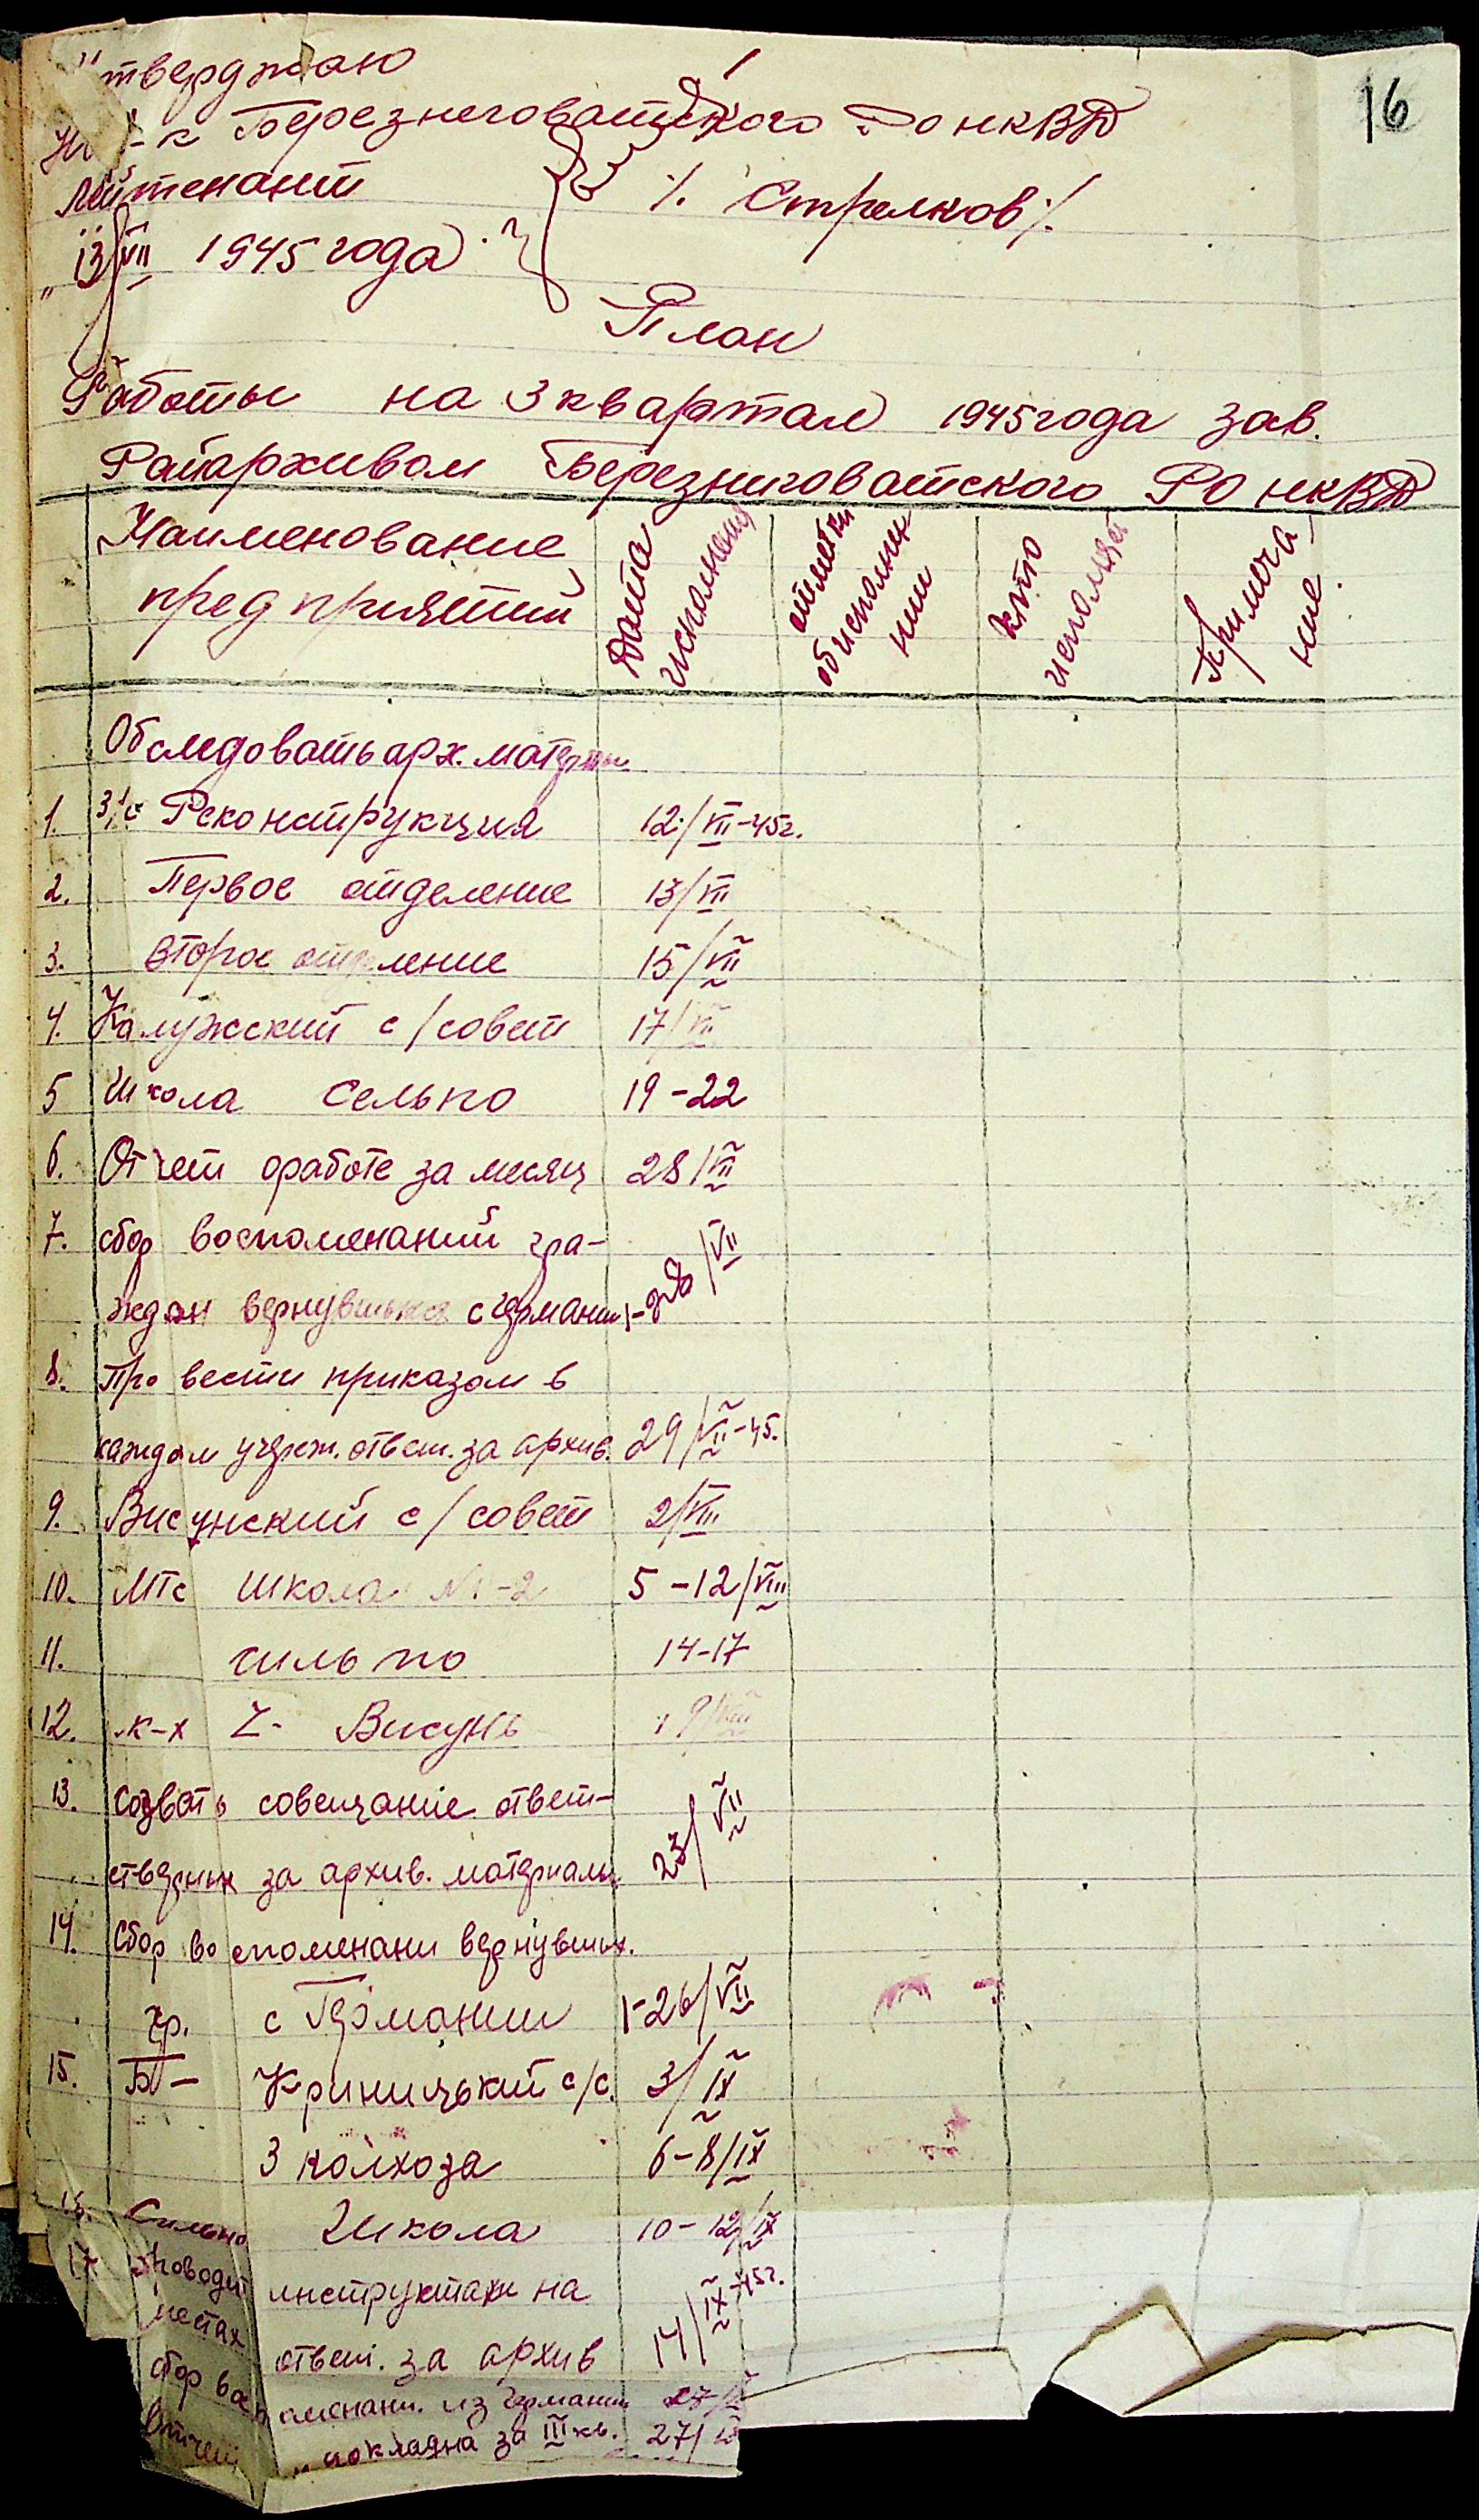 Утверждаю
16
Нач-к Березнеговатского РО НКВД
Лейтенант /. Стрелков /.
"13/VII 1945 года
План
Работы на 3 квартал 1945 года зав.
Райархивом Березниговатского РО НКВД
Наименование предприятий
Дата исполнения
отметки об исполнении
кто исполняет
Примечание
Обследовать арх. матерьял.
1. з/с Реконструкция 12/VII-45г.
2. Первое отделение 13/VII
3. Второе отделение 15/VII
4. Калужский с/совет 17/VII
5 Школа Сельпо 19-22
6. Отчет оработе за месяц 28/VII
7. сбор воспоменаний гра-
ждан вернувшихся с германии 1-28/VII
8. Про вести приказом в
каждом учреж. ответ. за архив. 29/VII-45.
9. Висунский с/совет 2/VIII
10. МТС Школа №1-2 5-12/VIII
11. сильпо 14-17
12. к-х Ч- Висунь 19/VIII
13. Созвать совещание ответ-
ствених за архив. матерналы 23/VII
14. Сбор воспоменани вернувших.
гр. с Германии 1-26/VII
15. Б- Криницький с/с. 3/IX
3 колхоза 6-8/IX
16. Сильпо Школа 10-12/IX
17 проводит инструктаж на
местах ответ. за архив 14/IX-45г.
сбор воспоменани. из германии 27/IX
Отчет докладна за III кв. 27/IX